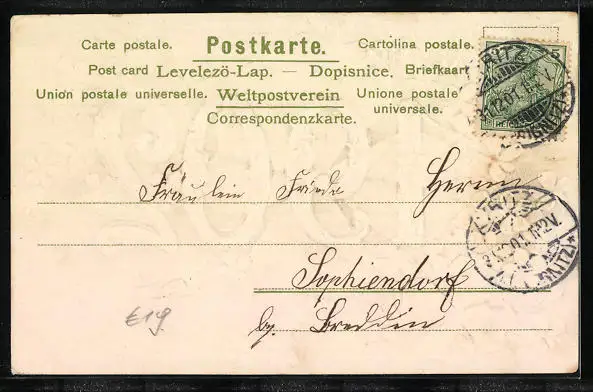 Carte postale. Postkarte. Cartolina postale.
Post card Levelező-Lap. — Dopisnice. Briefkaart
Union postale universelle. Weltpostverein Unione postale universale.
Correspondenzkarte.
Fräulein Frieda
Sophiendorf
by. Breddin
€19